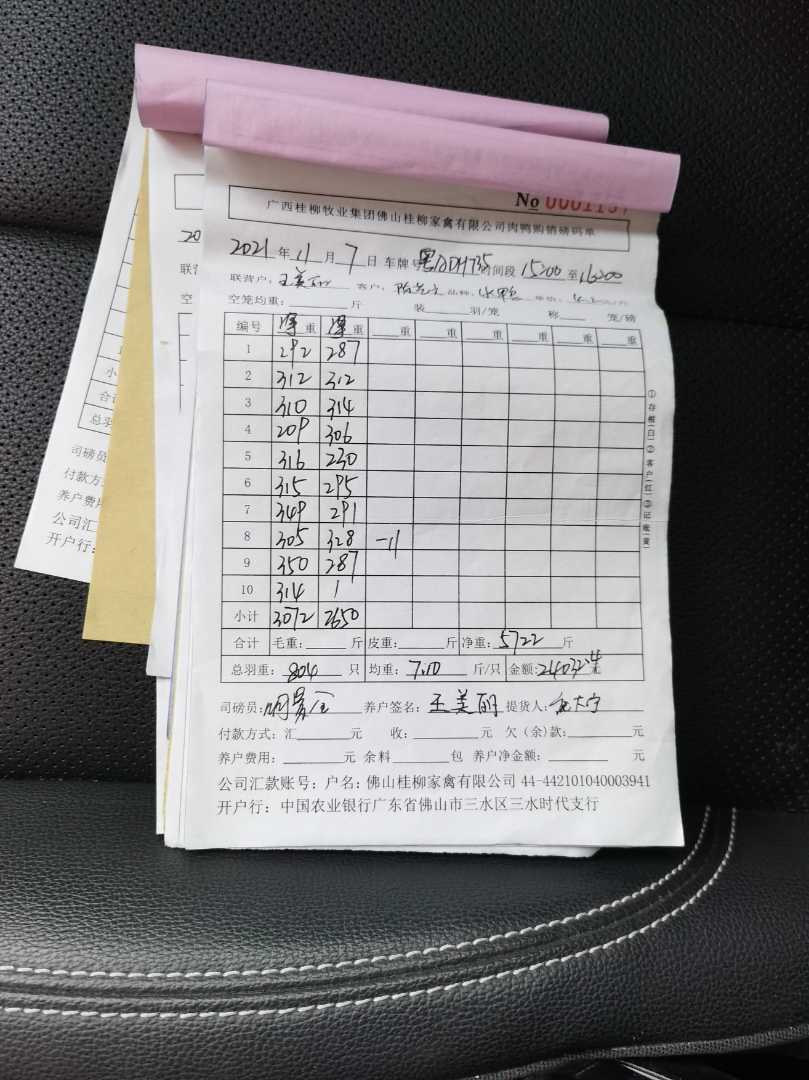 No 000115
广西桂柳牧业集团佛山桂柳家禽有限公司肉鸭购销磅码单
2021年11月7日 车牌号 时间段 15:00至16:00
联营户：王美丽 客户：
空笼均重：____斤 装____羽/笼 称____笼/磅
编号 净重 净重 重 重 重 重 重 重
1 292 287
2 312 312
3 310 314
4 209 306
5 316 230
6 315 295
7 349 291
8 305 328 -11
9 350 287
10 314 1
小计 3072 2650
合计 毛重：____斤 皮重：____斤 净重：5722斤
总羽重：804只 均重：7.10斤/只 金额：24032.4元
司磅员： 养户签名：王美丽 提货人：
付款方式：汇____元 收：____元 欠（余）款：____元
养户费用：____元 余料____包 养户净金额：____元
公司汇款账号：户名：佛山桂柳家禽有限公司 44-442101040003941
开户行：中国农业银行广东省佛山市三水区三水时代支行
①存根(白)②客户(红)③记账(黄)
20
联营
空
小
合计
总羽
司磅员
付款方
养户费用
公司汇
开户行：